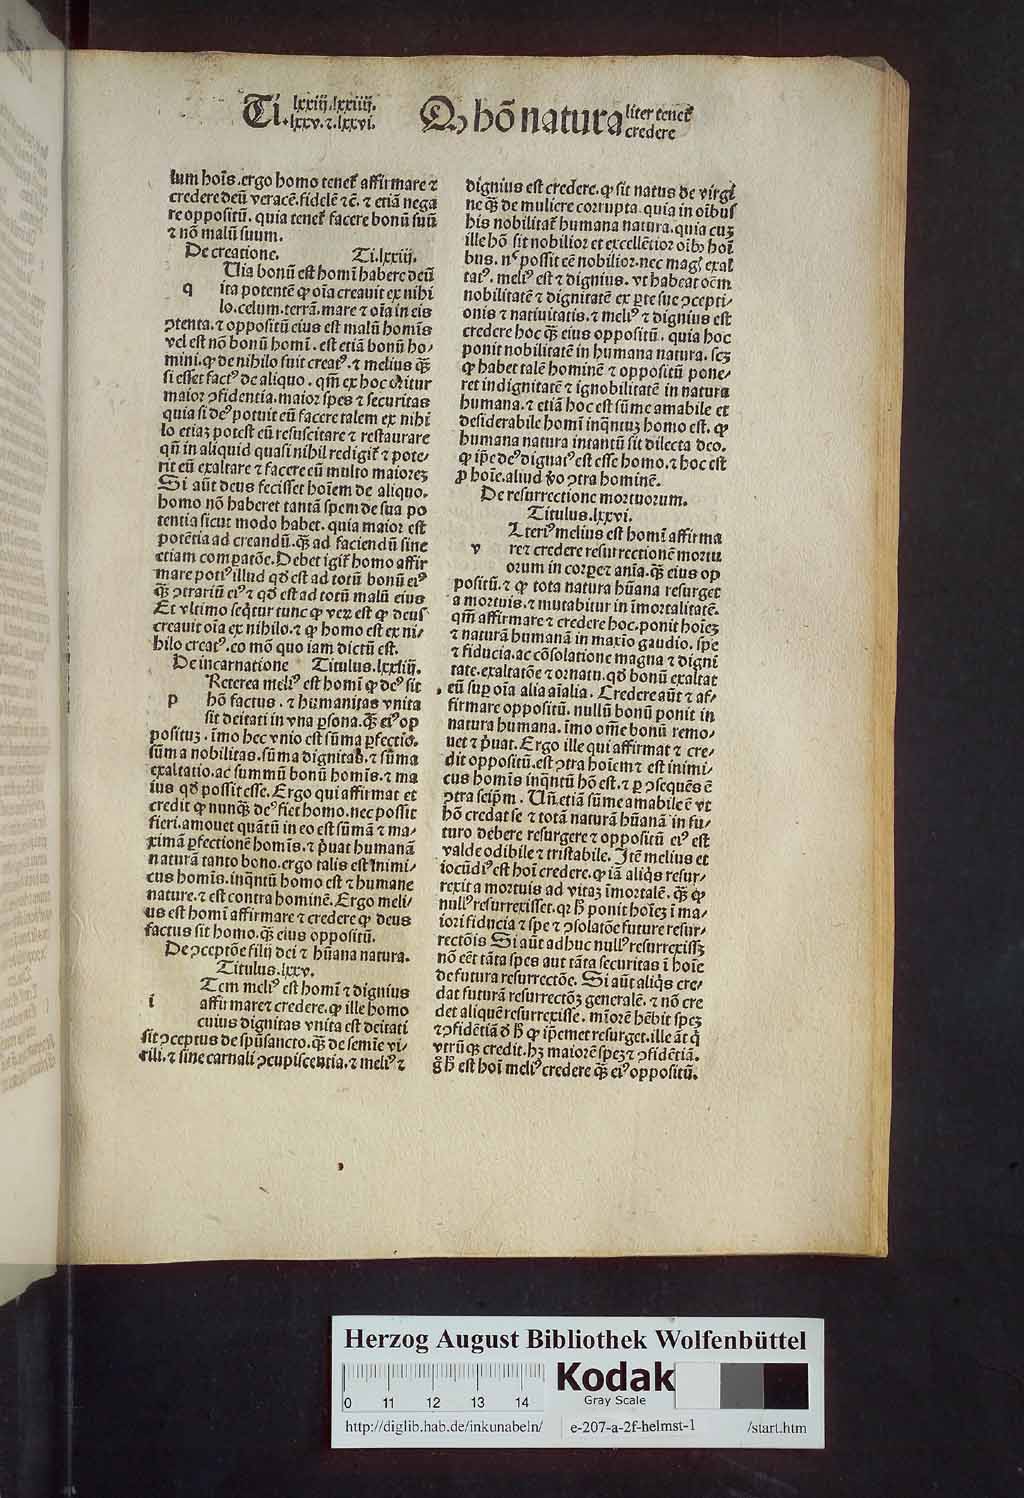 Ti. lxxiij.lxxiiij. lxxv.⁊.lxxvi.
Qꝫ hō natura liter tenet᷑ credere
lum hoīs.ergo homo tenet᷑ affirmare ⁊
credere deū veracē.fidelē ⁊c̄. ⁊ etiā nega
re oppositū. quia tenet᷑ facere bonū suū
⁊ nō malū suum.
De creatione. Ti.lxxiij.
Uia bonū est homī habere deū
q ita potentē ꝙ oīa creauit ex nihi
lo.celum.terrā.mare ⁊ oīa in eis
ꝯtenta.⁊ oppositū eius est malū homīs
vel est nō bonū homī. est etiā bonū ho/
mini.ꝙ de nihilo fuit creatꝰ.⁊ melius q̄ꝫ
si esset factꝰ de aliquo. qm̄ ex hoc oritur
maior ꝯfidentia.maior spes ⁊ securitas
quia si deꝰ potuit eū facere talem ex nihi
lo etiaꝫ potest eū resuscitare ⁊ restaurare
qn̄ in aliquid quasi nihil redigit᷑ ⁊ pote/
rit eū exaltare ⁊ facere eū multo maioreꝫ
Si aūt deus fecisset hoīem de aliquo.
homo nō haberet tantā spem de sua po
tentia sicut modo habet. quia maior est
potētia ad creandū.q̄ꝫ ad faciendū sine
etiam comparatōe.Debet igit᷑ homo affir
mare potiꝰ illud qd̄ est ad totū bonū eiꝰ
q̄ꝫ ꝯtrariū eiꝰ ⁊ qd̄ est ad totū malū eius
Et vltimo seq̄tur tunc ꝙ veꝝ est ꝙ deus
creauit oīa ex nihilo.⁊ ꝙ homo est ex ni/
hilo creatꝰ.eo mō quo iam dictū est.
De incarnatione Titulus.lxxiiij.
Reterea meliꝰ est homī ꝙ deꝰ sit
p hō factus.⁊ humanitas vnita
sit deitati in vna ꝑsona.q̄ꝫ eiꝰ op
posituꝫ.īmo hec vnio est sūma ꝑfectio.
sūma nobilitas.sūma dignitas.⁊ sūma
exaltatio.ac summū bonū homīs.⁊ ma
ius qd̄ possit esse.Ergo qui affirmat et
credit ꝙ nunq̄ꝫ deꝰ fiet homo.nec possit
fieri.amouet quātū in eo est sūmā ⁊ ma/
ximā ꝑfectionē homīs.⁊ p̄uat humanā
naturā tanto bono.ergo talis est inimi/
cus homīs.inq̄ntū homo est ⁊ humane
nature.⁊ est contra hominē.Ergo meli/
us est homī affirmare ⁊ credere ꝙ deus
factus sit homo.q̄ꝫ eius oppositū.
De ꝯceptōe filij dei ⁊ hūana natura.
Titulus.lxxv.
Tem meliꝰ est homī ⁊ dignius
i affirmare⁊ credere.ꝙ ille homo
cuius dignitas vnita est deitati
sit ꝯceptus de spūsancto.q̄ꝫ de semīe vi/
rili.⁊ sine carnali ꝯcupiscentia.⁊ meliꝰ ⁊
dignius est credere.ꝙ sit natus de virgi
ne q̄ꝫ de muliere corrupta.quia in oībus
his nobilitat᷑ humana natura.quia cuꝫ
ille hō sit nobilior et excellētior oībꝰ homī
bus. nō possit eē nobilior.nec magꝭ exal
tatꝰ. meliꝰ est ⁊ dignius. vt habeat oēm
nobilitatē ⁊ dignitatē ex ꝑte sue ꝯcepti/
onis ⁊ natiuitatis.⁊ meliꝰ ⁊ dignius est
credere hoc q̄ꝫ eius oppositū. quia hoc
ponit nobilitatē in humana natura. scꝫ
ꝙ habet talē hominē ⁊ oppositū pone/
ret indignitatē ⁊ ignobilitatē in natura
humana.⁊ etiā hoc est sūme amabile et
desiderabile homī inq̄ntuꝫ homo est. ꝙ
humana natura intantū sit dilecta deo.
ꝙ ip̄e deꝰ dignatꝰ est esse homo.⁊ hoc est
ꝓ hoīe.aliud v̊o ꝯtra hominē.
De resurrectione mortuorum.
Titulus.lxxvi.
Lteriꝰ melius est homī affirma
v re⁊ credere resurrectionē mortu
orum in corꝑe⁊ anīa.q̄ꝫ eius op
positū.⁊ ꝙ tota natura hūana resurget
a mortuis.⁊ mutabitur in īmortalitatē.
qm̄ affirmare ⁊ credere hoc.ponit hoīeꝫ
⁊ naturā humanā in maxīo gaudio. spe
⁊ fiducia.ac cōsolatione magna ⁊ digni
tate.exaltatōe ⁊ ornatu.qd̄ bonū exaltat
eū suꝑ oīa alia aīalia. Credere aūt ⁊ af/
firmare oppositū. nullū bonū ponit in
natura humana. īmo om̄e bonū remo/
uet ⁊ p̄uat. Ergo ille qui affirmat ⁊ cre/
dit oppositū.est ꝯtra hoīem ⁊ est inimi/
cus homīs inq̄ntū hō est.⁊ ꝑ ꝯsequēs ē
ꝯtra seip̄m. Uñ.etiā sūme amabile ē vt
hō credat se ⁊ totā naturā hūanā in fu/
turo debere resurgere ⁊ oppositū eiꝰ est
valde odibile ⁊ tristabile. Itē melius et
iocūdiꝰ est hoī credere.ꝙ iā aliq̄s resur/
rexit a mortuis ad vitaꝫ īmortalē. q̄ꝫ ꝙ
nullꝰ resurrexisset.qꝛ h̄ ponit hoīeꝫ ī ma/
iori fiducia ⁊ spe ⁊ ꝯsolatōe future resur/
rectōis Si aūt adhuc nullꝰ resurrexissꝫ
nō eēt tāta spes aut tāta securitas ī hoīe
de futura resurrectōe. Si aūt aliq̄s cre/
dat futurā resurrectōꝫ generalē.⁊ nō cre
det aliquē resurrexisse. mīorē hēbit speꝫ
⁊ ꝯfidētiā d̄ h̄ ꝙ ip̄emet resurget.ille āt q̄
vtrūqꝫ credit.hꝫ maiorē speꝫ ⁊ ꝯfidētiā.
g̊ h̄ est hoī meliꝰ credere q̄ꝫ eiꝰ oppositū.
Herzog August Bibliothek Wolfenbüttel
0 11 12 13 14
Kodak
Gray Scale
http://diglib.hab.de/inkunabeln/ e-207-a-2f-helmst-1 /start.htm